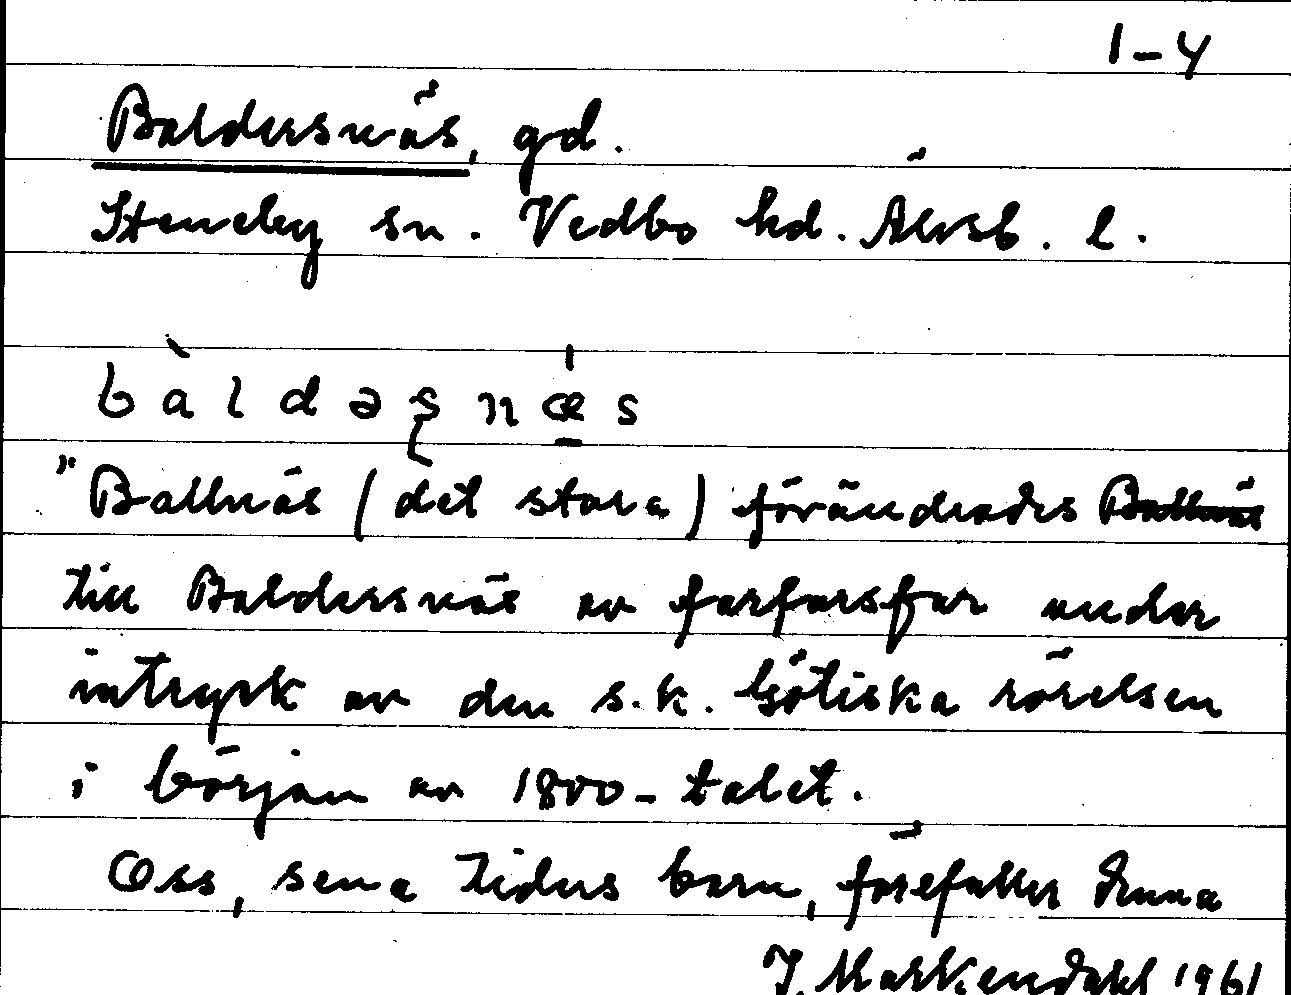 1-4
Baldersnäs, gd.
Steneby sn. Vedbo hd. Älvsb. l.
bàldəʂnǽs
"Ballnäs (det stora) förändrades Ballnäs
till Baldersnäs av farfarsfar under
intryck av den s.k. Götiska rörelsen
i början av 1800-talet.
Oss, sena tiders barn, förefaller denna
J. Markendahl 1961